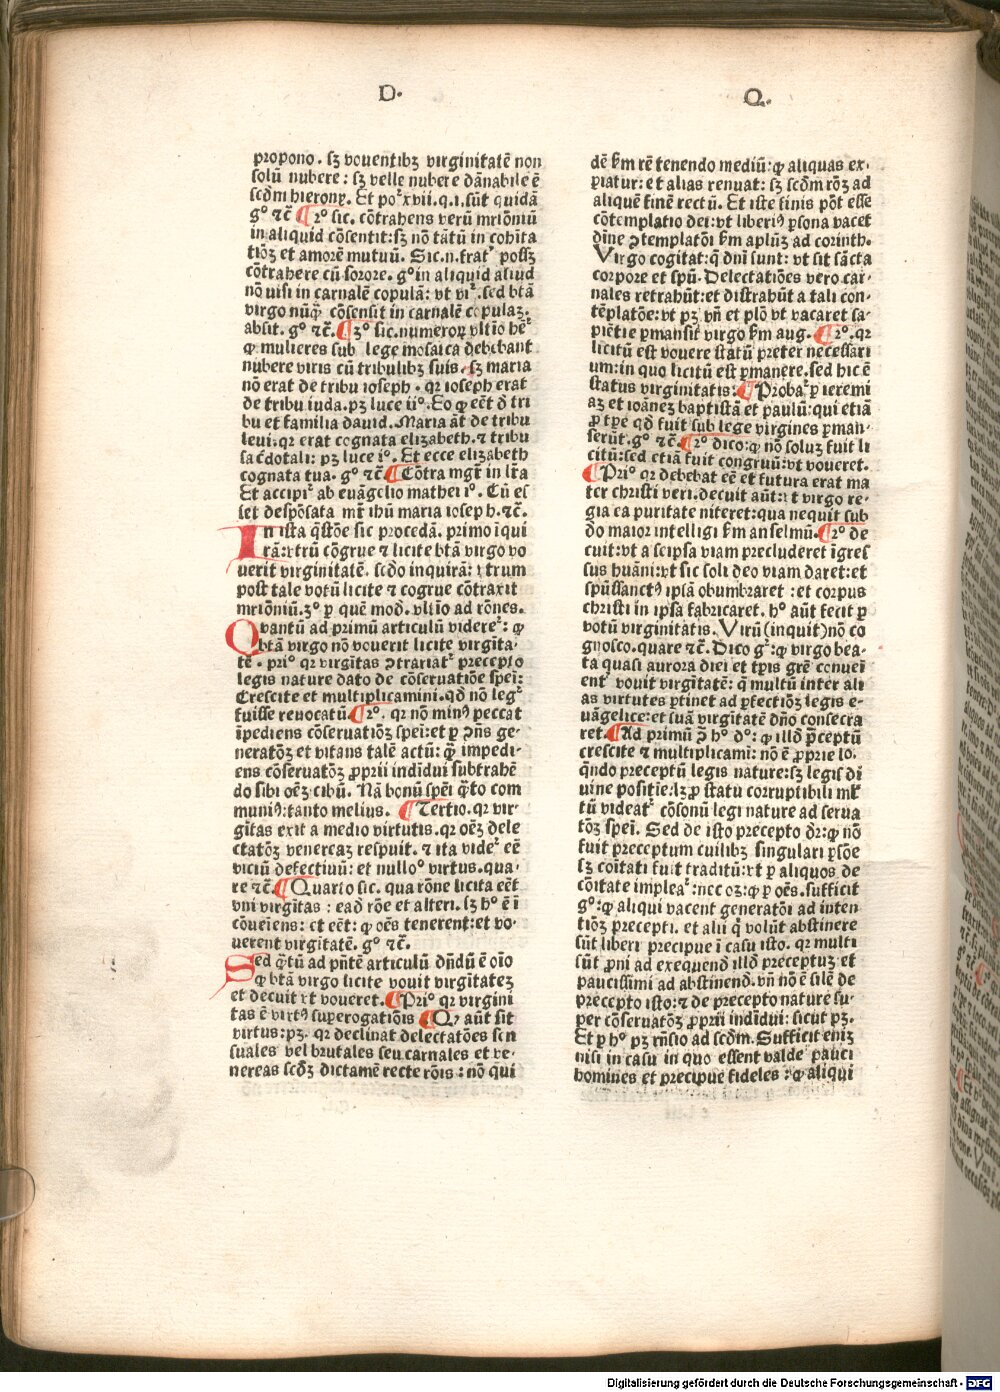 D.
Q.
propono. sꝫ vouentibꝫ virginitatē non
solū nubere: sꝫ velle nubere dānabile ē
scdm hierony. Et po² xvii. q. i. sūt quidā
g° ⁊c̄ ¶ 2° sic. cōtrahens verū mrīoniū
in aliquid cōsentit: sꝫ nō tātū in cohīta
tiōꝫ et amorē mutuū. Sic. n. frat² possꝫ
cōtrahere cū sorore. g° in aliquid aliud
nō nisi in carnalē copulā: vt vī². sed btā
virgo nūq̄ cōsensit in carnalē copulaꝫ.
absit. g° ⁊c̄. ¶ 3° sic. numeroꝝ vltīo hē²
ꝙ mulieres sub lege mosaica debebant
nubere viris cū tribulibꝫ suis. sꝫ maria
nō erat de tribu ioseph. qꝛ ioseph erat
de tribu iuda. pꝫ luce ii°. Eo ꝙ eēt d̄ tri
bu et familia dauid. Maria āt de tribu
leui. qꝛ erat cognata elizabeth. ⁊ tribu
sac̄dotali: pꝫ luce i°. Et ecce elizabeth
cognata tua. g° ⁊c̄ ¶ Cōtra mgr̄ in lr̄a
Et accipi² ab euāgelio mathei i°. Cū es
set despōsata mr̄ ihū maria ioseph. ⁊c̄.
In ista q̄stōe sic procedā. primo īqui
rā: vtrū cōgrue ⁊ licite btā virgo vo
uerit virginitatē. scdo inquirā: vtrum
post tale votū licite ⁊ cogrue cōtraxit
mrīoniū. 3° p quē mod. vltīo ad rōnes.
Qvantū ad primū articulū videre²: ꝙ
btā virgo nō vouerit licite virgīta-
tē. pri° qꝛ virgītas ꝯtrariat² precepto
legis nature dato de cōseruatiōe spēi:
Crescite et multiplicamini. qd nō leg²
fuisse reuocatū. ¶ 2°. qꝛ nō minꝰ peccat
īpediens cōseruatiōꝫ spēi: et p ꝯn̄s ge-
neratōꝫ et vitans talē actū: q̄ impedi-
ens cōseruatōꝫ ꝓprii indīdui subtrahē
do sibi oēꝫ cibū. Nā bonū spēi q̄to com
muniꝰ: tanto melius. ¶ Tertio. qꝛ vir-
gītas exit a medio virtutis. qꝛ oēꝫ dele
ctatōꝫ venereaꝫ respuit. ⁊ ita vide² eē
viciū defectiuū: et nullo° virtus. qua-
re ⁊c̄. ¶ Quarto sic. qua rōne licita eēt
vni virgītas: eād rōe et alteri. sꝫ h° ē ī
cōueīens: ct eēt: ꝙ oēs tenerent: et vo-
uerent virgītatē. g° ⁊c̄.
Sed q̄tū ad pn̄tē articulū dn̄dū ē oīo
ꝙ btā virgo licite vouit virgītateꝫ
et decuit vt voueret. ¶ Pri° qꝛ virgini
tas ē virtꝰ superogatiōis ¶ Q, aūt sit
virtus: pꝫ. qꝛ declinat delectatōes sen
suales vel brutales seu carnales et ve-
nereas scdꝫ dictamē recte rōis: nō qui
dē fm rē tenendo mediū: ꝙ aliquas ex-
ꝑiatur: et alias renuat: sꝫ scdm rōꝫ ad
aliquē finē rectū. Et iste finis pōt esse
cōtemplatio dei: vt liberiꝰ ꝑsona vacet
dīne ꝯtemplatōi fm aplūꝫ ad corinth.
Virgo cogitat: q̄ dnī sunt: vt sit sācta
corpore et spū. Delectatiōes vero car-
nales retrahūt: et distrahūt a tali con-
tēplatōe: vt pꝫ vn̄ et plō vt vacaret sa-
piētie ꝑmansit virgo fm aug. ¶ 2°. qꝛ
licitū est vouere statū preter necessari
um: in quo licitū est ꝑmanere. sed hic ē
status virginitatis: ¶ Proba² p ieremi
aꝫ et ioānēꝫ baptistā et paulū: qui etiā
ꝓ tꝑe qd fuit sub lege virgines ꝑman-
serūt. g° ⁊c̄ ¶ 2° dico: ꝙ nō soluꝫ fuit li
citū: sed etiā fuit congruū: vt voueret.
¶ Pri° qꝛ debebat eē et futura erat ma
ter christi veri. decuit aūt: vt virgo re-
gia ea puritate niteret: qua nequit sub
do maior intelligi fm anselmū. ¶ 2° de
cuit: vt a seipsa viam precluderet īgres
sus huāni: vt sic soli deo viam daret: et
spūssanctꝰ ipsā obumbraret: et corpus
christi in ipsa fabricaret. h° aūt fecit p
votū virginitatis. Virū (inquit) nō co
gnosco. quare ⁊c̄. Dico g²: ꝙ virgo bea-
ta quasi aurora diei et tꝑis grē conueī
ent² vouit virgītatē: q̄ multū inter ali
as virtutes ꝑtinet ad ꝑfectiōꝫ legis e-
uāgelice: et suā virgītatē dn̄o consecra
ret. ¶ Ad primū ꝯ h° d°: ꝙ illd p̄ceptū
crescite ⁊ multiplicami: nō ē ꝓprie lo-
q̄ndo preceptū legis nature: sꝫ legis di
uine positie: lꝫ ꝓ statu corruptibili ml̄
tū videat² cōsonū legi nature ad serua
tōꝫ spēi. Sed de isto precepto dr̄: ꝙ nō
fuit preceptum cuilibꝫ singulari ꝑsōe
sꝫ coītati fuit traditū: vt p aliquos de
cōitate implea²: nec oꝫ: ꝙ p oēs. sufficit
g°: ꝙ aliqui vacent generatōi ad inten
tiōꝫ precepti. et alii q̄ volūt abstinere
sūt liberi precipue ī casu isto. qꝛ multi
sūt ꝓni ad exequend illd preceptuꝫ et
paucissimi ad abstinend. vn̄ nō ē silē de
precepto isto: ⁊ de precepto nature su-
per cōseruatōꝫ ꝓprii indīdui: sicut pꝫ.
Et p h° pꝫ rn̄sio ad scdm. Sufficit eniꝫ
nisi in casu in quo essent valde pauci
homines et precipue fideles: ꝙ aliqui
Digitalisierung gefördert durch die Deutsche Forschungsgemeinschaft - DFG